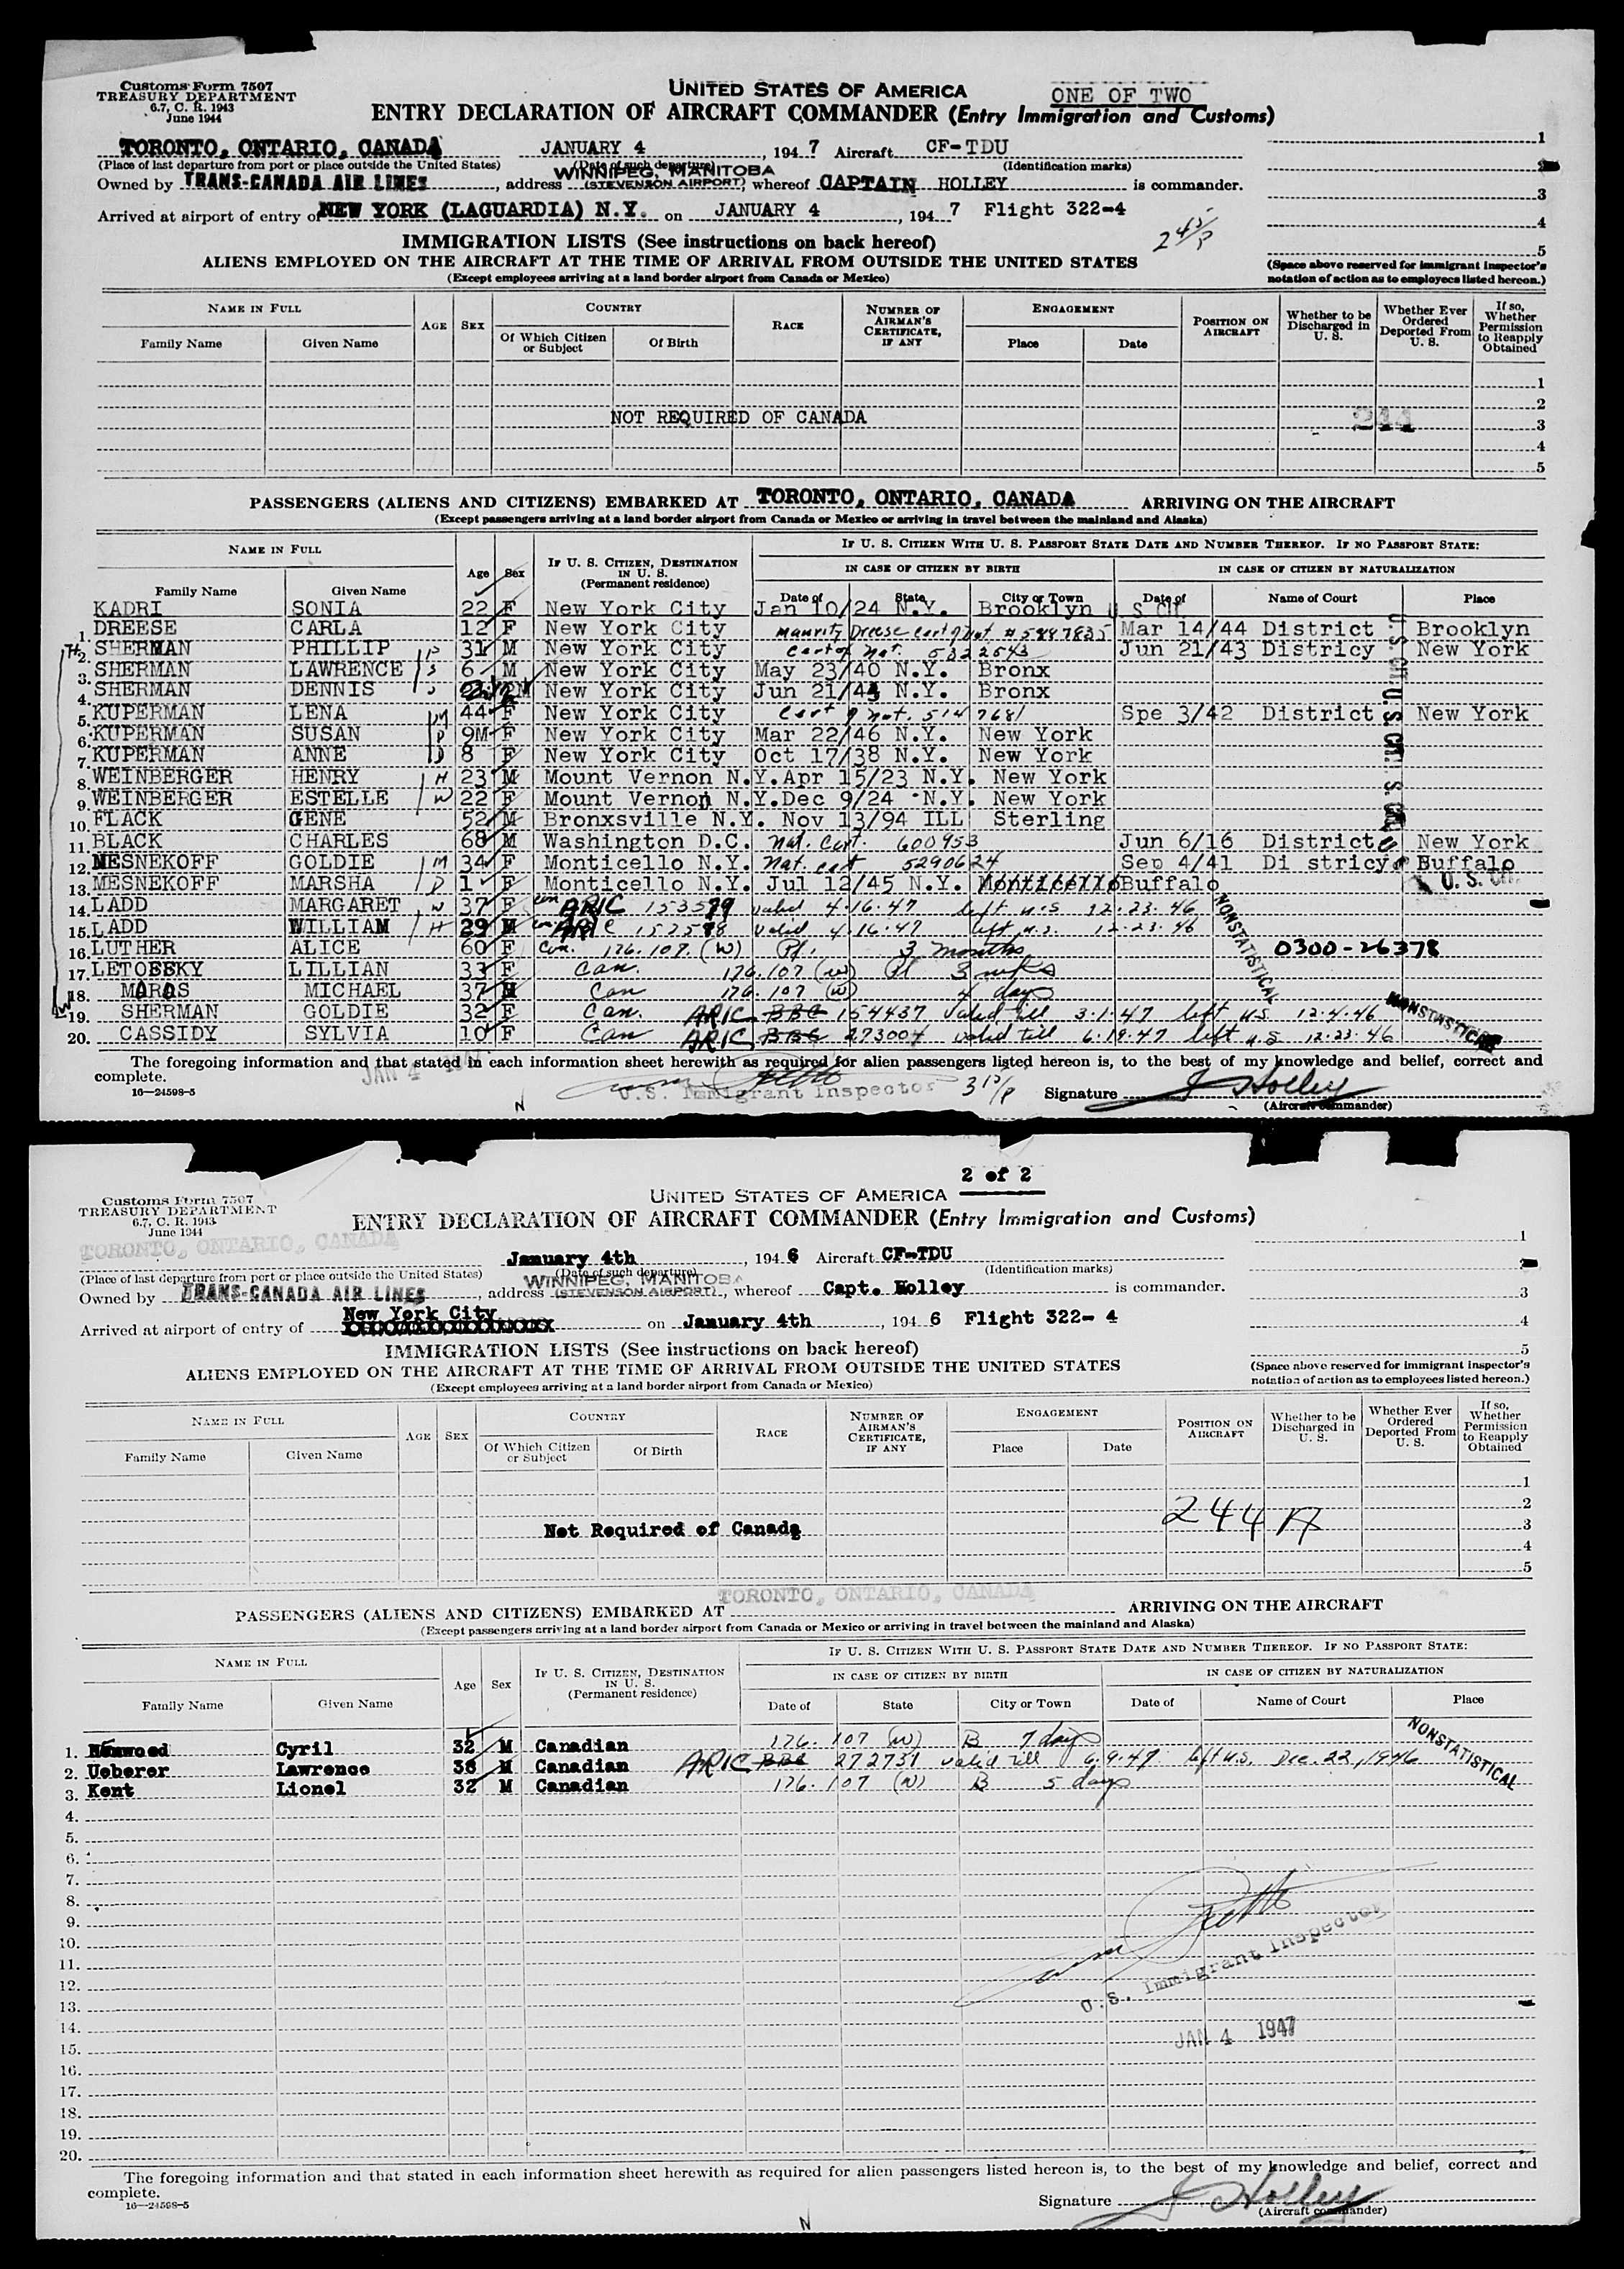 Customs Form 7507
TREASURY DEPARTMENT
6.7, C. R. 1943
June 1944
UNITED STATES OF AMERICA
ONE OF TWO
ENTRY DECLARATION OF AIRCRAFT COMMANDER (Entry Immigration and Customs)
TORONTO, ONTARIO, CANADA JANUARY 4, 1947 Aircraft CF-TDU
(Place of last departure from port or place outside the United States) (Date of such departure) (Identification marks)
WINNIPEG, MANITOBA
Owned by TRANS-CANADA AIR LINES, address (STEVENSON AIRPORT), whereof CAPTAIN HOLLEY is commander.
Arrived at airport of entry of NEW YORK (LAGUARDIA) N.Y. on JANUARY 4, 1947 Flight 322-4
1
2
3
4
5
2 45/P
IMMIGRATION LISTS (See instructions on back hereof)
ALIENS EMPLOYED ON THE AIRCRAFT AT THE TIME OF ARRIVAL FROM OUTSIDE THE UNITED STATES
(Except employees arriving at a land border airport from Canada or Mexico)
(Space above reserved for immigrant inspector's notation of action as to employees listed hereon.)
NAME IN FULL AGE SEX COUNTRY RACE NUMBER OF AIRMAN'S CERTIFICATE, IF ANY ENGAGEMENT POSITION ON AIRCRAFT Whether to be Discharged in U. S. Whether Ever Ordered Deported From U. S. If so, Whether Permission to Reapply Obtained
Family Name Given Name Of Which Citizen or Subject Of Birth Place Date
1
2
NOT REQUIRED OF CANADA 244
3
4
5
PASSENGERS (ALIENS AND CITIZENS) EMBARKED AT TORONTO, ONTARIO, CANADA ARRIVING ON THE AIRCRAFT
(Except passengers arriving at a land border airport from Canada or Mexico or arriving in travel between the mainland and Alaska)
NAME IN FULL Age Sex IF U. S. CITIZEN, DESTINATION IN U. S. (Permanent residence) IF U. S. CITIZEN WITH U. S. PASSPORT STATE DATE AND NUMBER THEREOF. IF NO PASSPORT STATE:
IN CASE OF CITIZEN BY BIRTH IN CASE OF CITIZEN BY NATURALIZATION
Family Name Given Name Date of State City or Town Date of Name of Court Place
KADRI SONIA 22 F New York City Jan 10/24 N.Y. Brooklyn U S Cit
1. DREESE CARLA 12 F New York City Dreese cert of nat. #5887835 Mar 14/44 District Brooklyn
2. SHERMAN PHILLIP 31 M New York City Cert of nat. 5322543 Jun 21/43 Districy New York
3. SHERMAN LAWRENCE 6 M New York City May 23/40 N.Y. Bronx
4. SHERMAN DENNIS M New York City Jun 21/44 N.Y. Bronx
5. KUPERMAN LENA 44 F New York City Cert of nat. 5147681 Spe 3/42 District New York
6. KUPERMAN SUSAN 9M F New York City Mar 22/46 N.Y. New York
7. KUPERMAN ANNE 8 F New York City Oct 17/38 N.Y. New York
8. WEINBERGER HENRY H 23 M Mount Vernon N.Y. Apr 15/23 N.Y. New York
9. WEINBERGER ESTELLE W 22 F Mount Vernon N.Y. Dec 9/24 N.Y. New York
10. FLACK GENE 52 M Bronxsville N.Y. Nov 13/94 ILL Sterling
11. BLACK CHARLES 68 M Washington D.C. Nat. Cert. 600953 Jun 6/16 District New York
12. MESNEKOFF GOLDIE M 34 F Monticello N.Y. Nat. cert 5290624 Sep 4/41 Di stricy Buffalo
13. MESNEKOFF MARSHA D 1 F Monticello N.Y. Jul 12/45 N.Y. Monticello Buffalo U.S. Cit.
14. LADD MARGARET W 37 F Can ARIC 153599 valid 4.16.47 left u.s 12.23.46
15. LADD WILLIAM H 29 M ARIC 153598 valid 4.16.47 left u.s. 12.23.46
16. LUTHER ALICE 60 F Can. 176.107.(W) Pl. 3 months 0300-26378
17. LETOFSKY LILLIAN 33 F Can. 176.107 (W) Pl 3 wks
18. MOROS MICHAEL 37 M Can 176.107 (W) 4 days
19. SHERMAN GOLDIE 32 F Can. ARIC BBC 154437 Valid till 3.1.47 left u.s. 12.4.46
20. CASSIDY SYLVIA 10 F Can ARIC BBC 273004 valid till 6.19.47 left u.s 12.23.46
NONSTATISTICAL
NONSTASTICAL
The foregoing information and that stated in each information sheet herewith as required for alien passengers listed hereon is, to the best of my knowledge and belief, correct and complete.
JAN 4
16—24598-5
U.S. Immigrant Inspector 3 15/P Signature J Holley
(Aircraft commander)
N
2 of 2
Customs Form 7507
TREASURY DEPARTMENT
6.7, C. R. 1943
June 1944
UNITED STATES OF AMERICA
ENTRY DECLARATION OF AIRCRAFT COMMANDER (Entry Immigration and Customs)
TORONTO, ONTARIO, CANADA January 4th, 1946 Aircraft CF-TDU
(Place of last departure from port or place outside the United States) (Date of such departure) (Identification marks)
WINNIPEG, MANITOBA
Owned by TRANS-CANADA AIR LINES, address (STEVENSON AIRPORT), whereof Capt. Holley is commander.
New York City
Arrived at airport of entry of on January 4th, 1946 Flight 322- 4
1
2
3
4
5
IMMIGRATION LISTS (See instructions on back hereof)
ALIENS EMPLOYED ON THE AIRCRAFT AT THE TIME OF ARRIVAL FROM OUTSIDE THE UNITED STATES
(Except employees arriving at a land border airport from Canada or Mexico)
(Space above reserved for immigrant inspector's notation of action as to employees listed hereon.)
NAME IN FULL AGE SEX COUNTRY RACE NUMBER OF AIRMAN'S CERTIFICATE, IF ANY ENGAGEMENT POSITION ON AIRCRAFT Whether to be Discharged in U. S. Whether Ever Ordered Deported From U. S. If so, Whether Permission to Reapply Obtained
Family Name Given Name Of Which Citizen or Subject Of Birth Place Date
1
2
Not Required of Canada 244 A
3
4
5
TORONTO, ONTARIO, CANADA
PASSENGERS (ALIENS AND CITIZENS) EMBARKED AT ARRIVING ON THE AIRCRAFT
(Except passengers arriving at a land border airport from Canada or Mexico or arriving in travel between the mainland and Alaska)
NAME IN FULL Age Sex IF U. S. CITIZEN, DESTINATION IN U. S. (Permanent residence) IF U. S. CITIZEN WITH U. S. PASSPORT STATE DATE AND NUMBER THEREOF. IF NO PASSPORT STATE:
IN CASE OF CITIZEN BY BIRTH IN CASE OF CITIZEN BY NATURALIZATION
Family Name Given Name Date of State City or Town Date of Name of Court Place
1. Cyril 32 M Canadian 176. 107 (W) B 7 days
2. Ueberer Lawrence 38 M Canadian ARIC BBC 272731 valid till 6.9.47 left u.s. Dec. 22, 1946
3. Kent Lionel 32 M Canadian 176. 107 (W) B 5 days
NONSTATISTICAL
4.
5.
6.
7.
8.
9.
10.
11.
12.
13.
14.
15.
16.
17.
18.
19.
20.
U.S. Immigrant Inspector
JAN 4 1947
The foregoing information and that stated in each information sheet herewith as required for alien passengers listed hereon is, to the best of my knowledge and belief, correct and complete.
16—24598-5
Signature J Holley
(Aircraft commander)
N